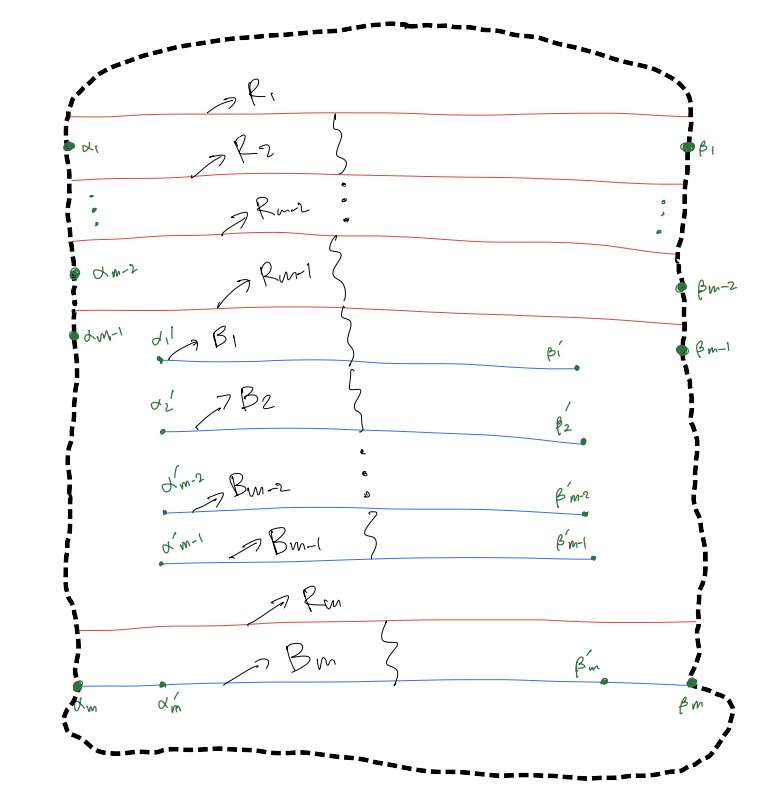 R₁
α₁ R₂ β₁
Rm-2
αm-2 Rm-1 βm-2
αm-1 α₁′ B₁ β₁′ βm-1
α₂′ B₂ β₂′
α′m-2 Bm-2 β′m-2
α′m-1 Bm-1 β′m-1
Rm
Bm β′m
αm α′m βm